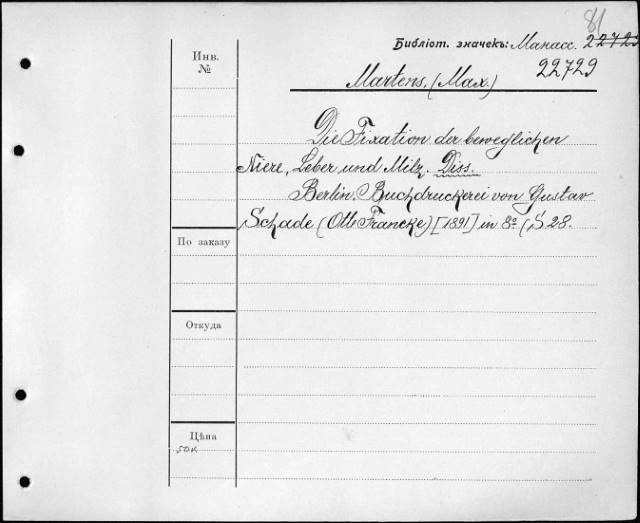 81
Библіот. значекъ: Манасс. 22723
22729
Инв.
№
Martens, (Max.)
Die Fixation der beweglichen
Niere, Leber und Milz. Diss.
Berlin. Buchdruckerei von Gustav
Schade (Otto Francke) [1891] in 8º (S 28.
По заказу
Откуда
Цѣна
50к